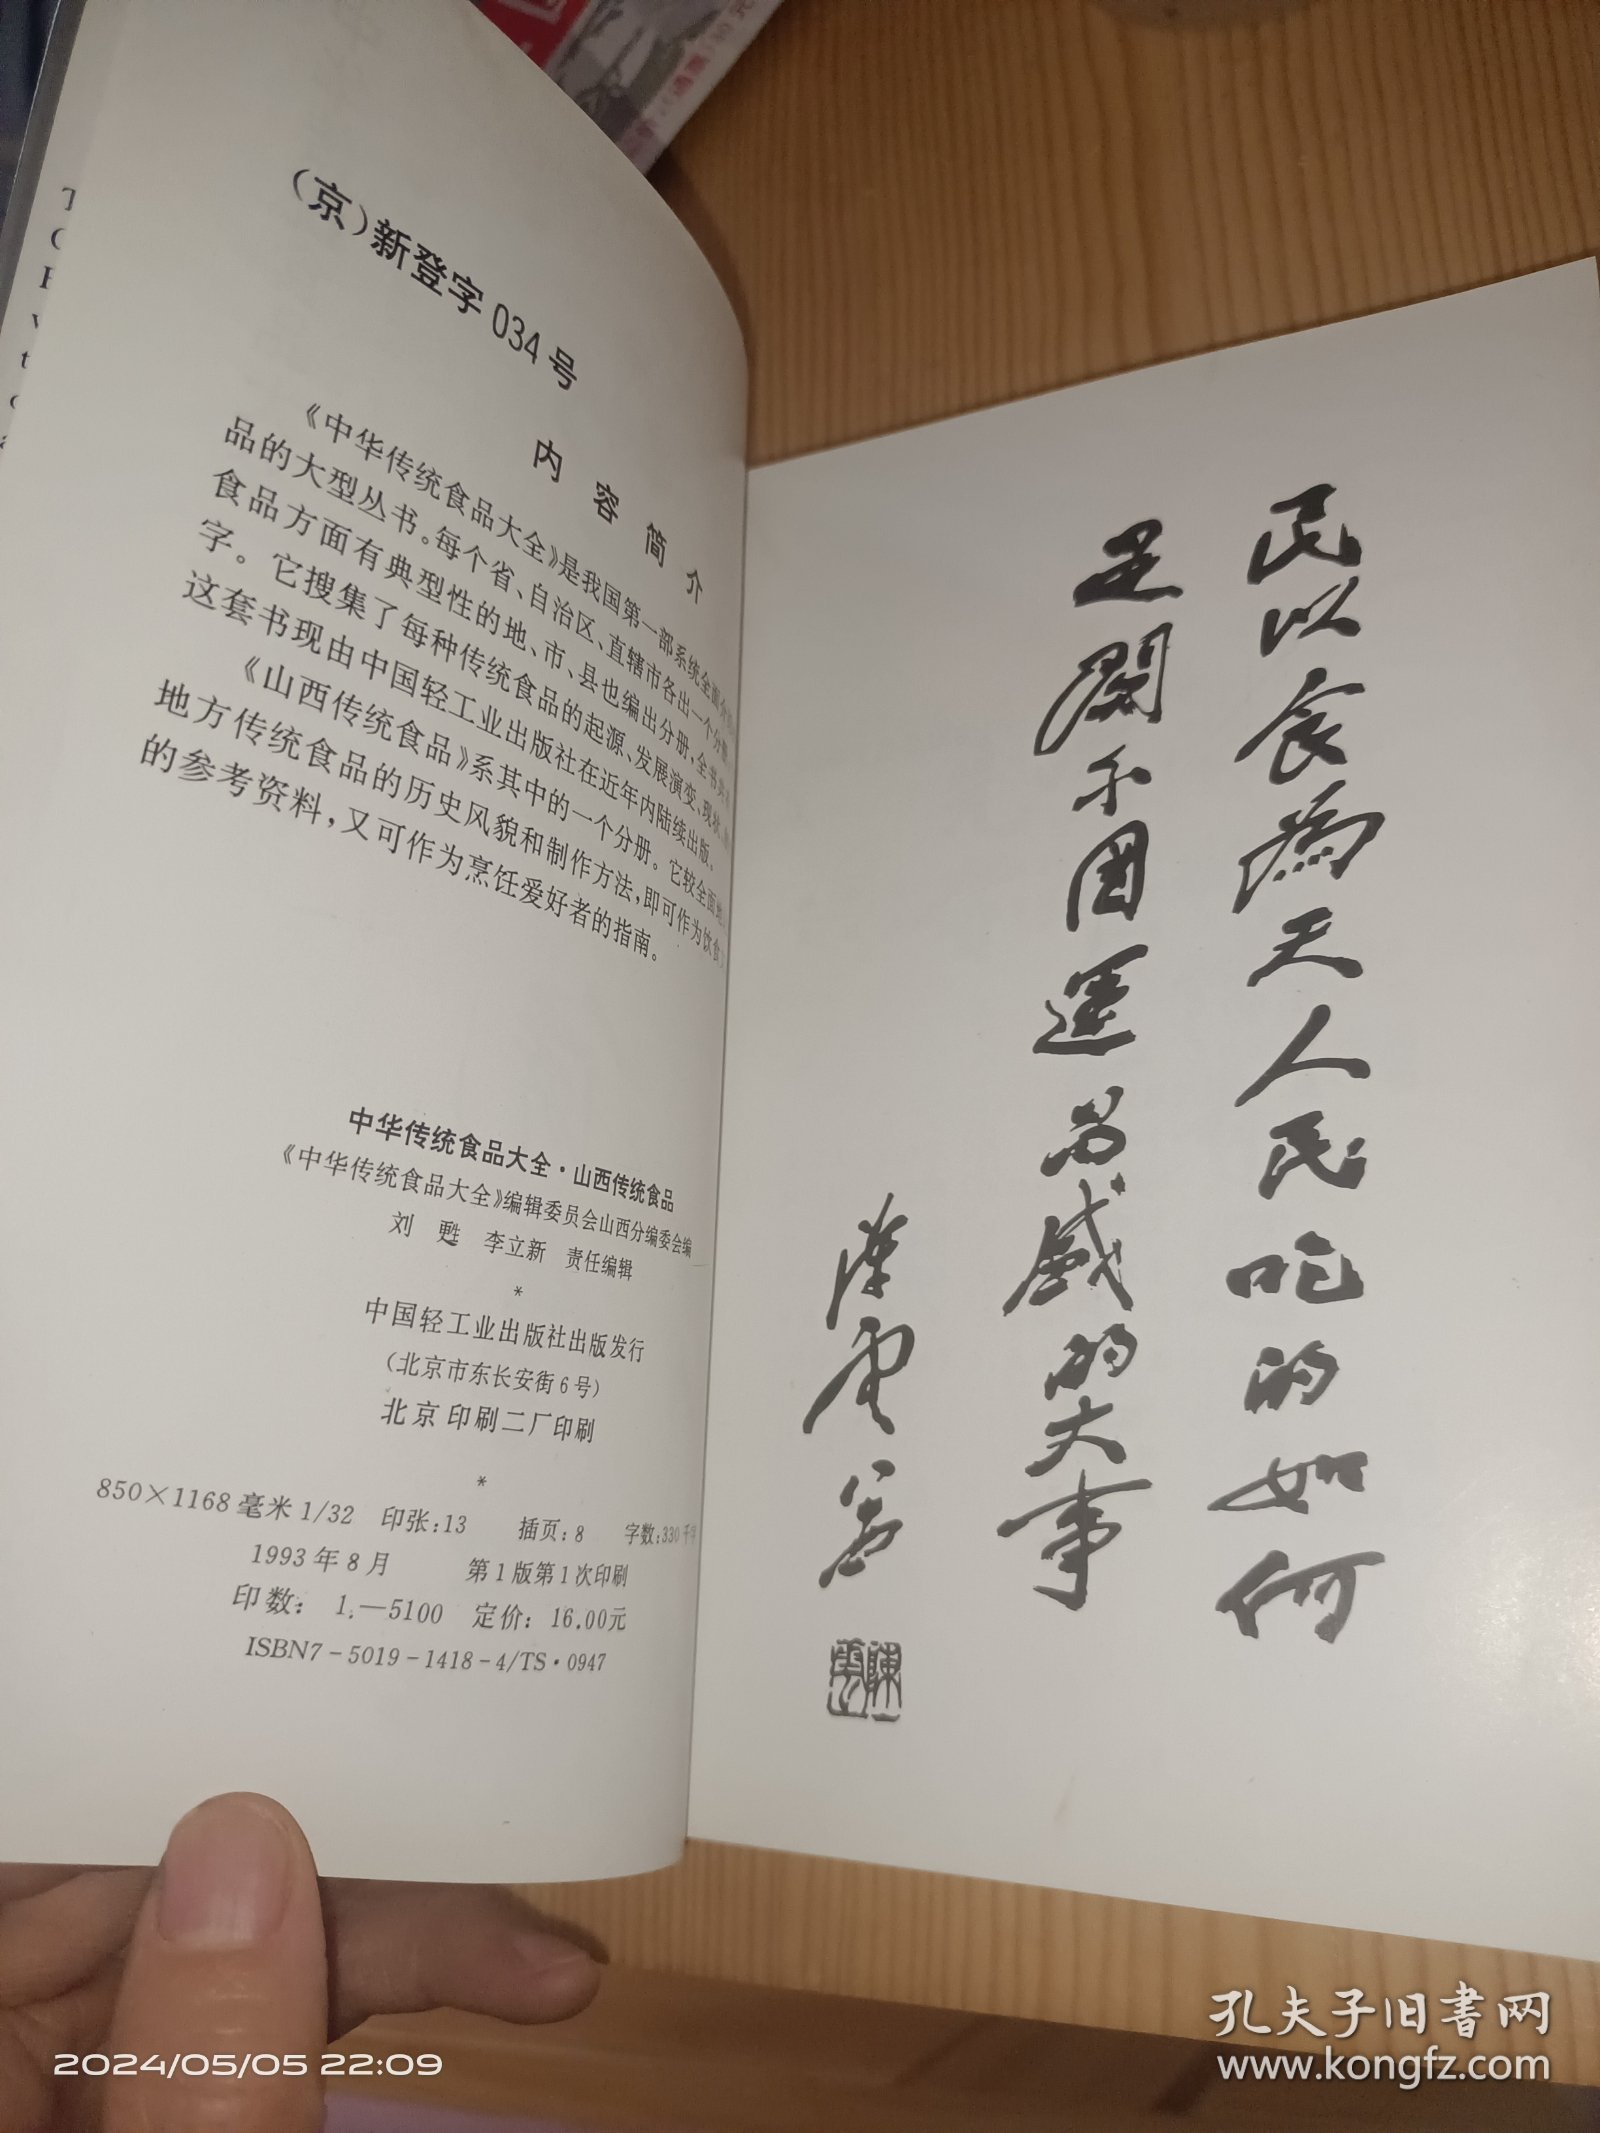 (京)新登字 034 号
内容简介
《中华传统食品大全》是我国第一部系统全面介
品的大型丛书。每个省、自治区、直辖市各出一个分册
食品方面有典型性的地、市、县也编出分册,全书
字。它搜集了每种传统食品的起源、发展演变、现状
这套书现由中国轻工业出版社在近年内陆续出版。
《山西传统食品》系其中的一个分册。它较全面地
地方传统食品的历史风貌和制作方法,即可作为饮食
的参考资料,又可作为烹饪爱好者的指南。
中华传统食品大全·山西传统食品
《中华传统食品大全》编辑委员会山西分编委会编
刘 甦 李立新 责任编辑
*
中国轻工业出版社出版发行
(北京市东长安街6号)
北京印刷二厂印刷
*
850×1168毫米 1/32 印张:13 插页:8 字数:330千字
1993年8月 第1版第1次印刷
印数: 1.—5100 定价: 16.00元
ISBN7-5019-1418-4/TS·0947
民以食為天人民吃的如何
是関乎國運昌盛的大事
陈雲题
陳雲
2024/05/05 22:09
孔夫子旧書网
www.kongfz.com